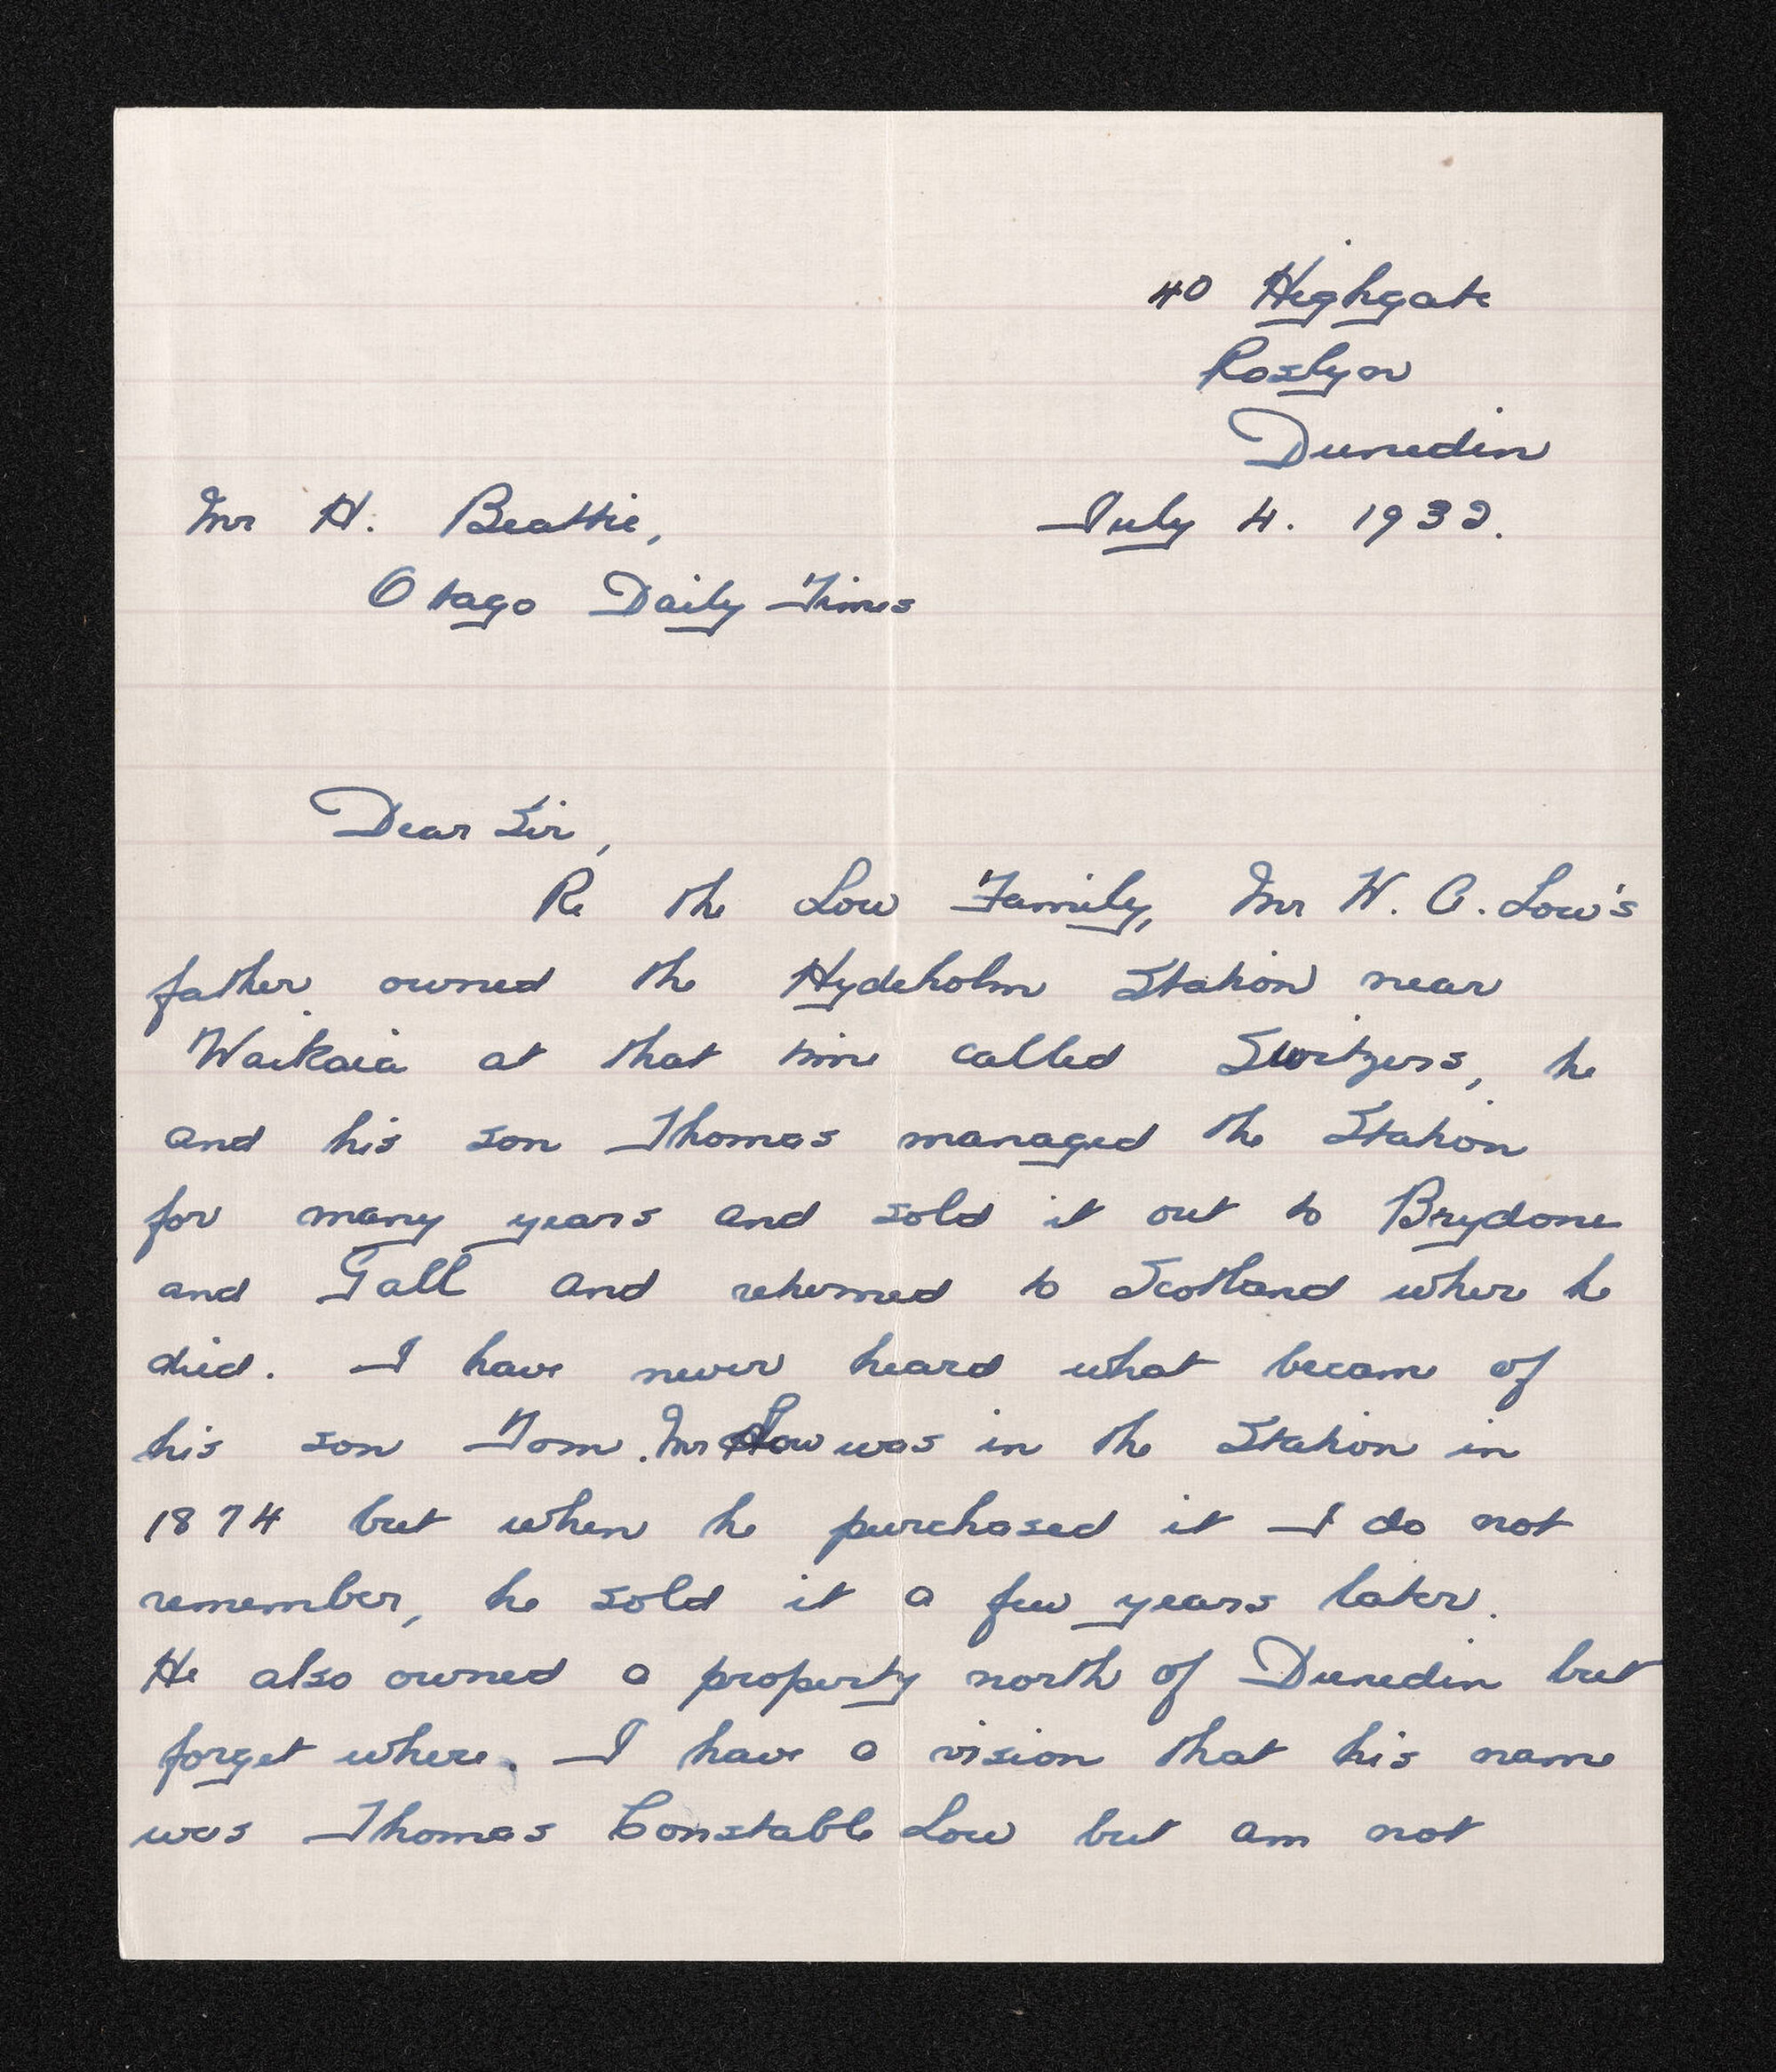 40 Highgate
Roslyn
Dunedin
Mr H. Beattie, July 4. 1932.
Otago Daily Times
Dear Sir,
Re the Low Family, Mr W. A. Low's
father owned the Hydeholm Station near
Waikaia at that time called Switzers, he
and his son Thomas managed the Station
for many years and sold it out to Brydone
and Gall and returned to Scotland where he
died. I have never heard what became of
his son Tom. Mr Low was in the Station in
1874 but when he purchased it I do not
remember, he sold it a few years later.
He also owned a property north of Dunedin but
forget where. I have a vision that his name
was Thomas Constable Low but am not